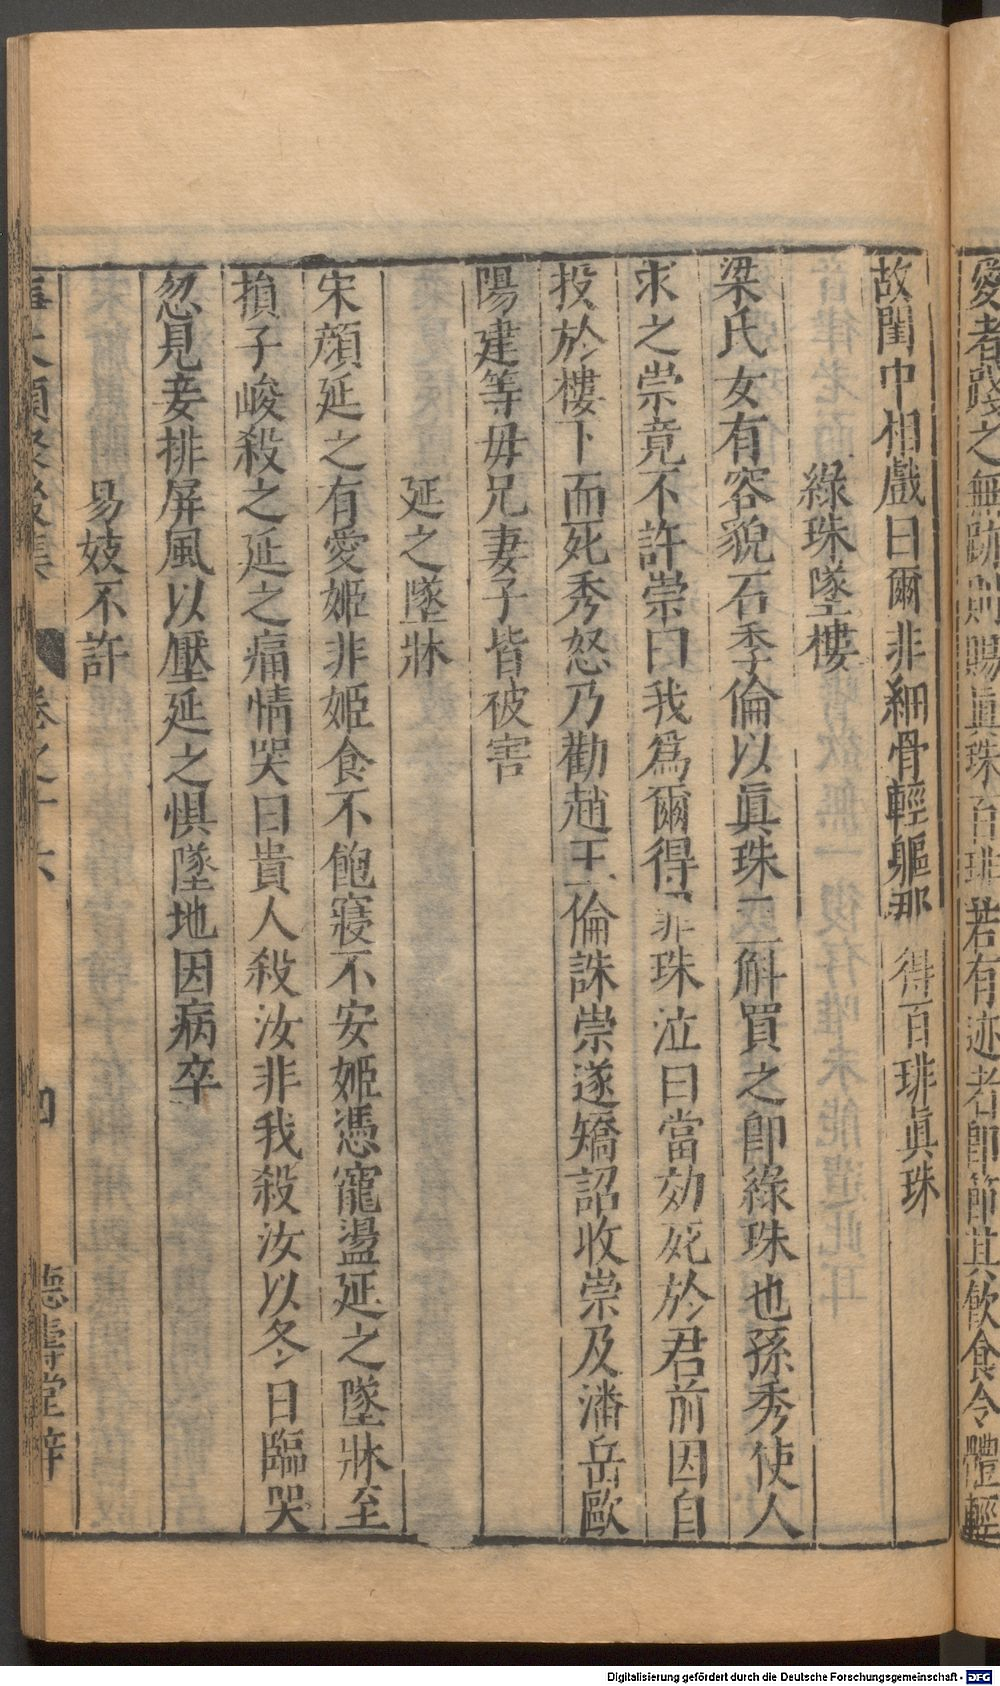 愛者踐之無跡則賜眞珠百琲若有迹者卽節其飲食令體輕
故閨中相戲曰爾非細骨輕軀那得百琲眞珠
綠珠墜樓
梁氏女有容貌石季倫以眞珠一斛買之卽綠珠也孫秀使人
求之崇竟不許崇曰我爲爾得罪珠泣曰當効死於君前因自
投於樓下而死秀怒乃勸趙王倫誅崇遂矯詔收崇及潘岳歐
陽建等毋兄妻子皆被害
延之墜牀
宋顔延之有愛姬非姬食不飽寢不安姬憑寵盪延之墜牀至
損子峻殺之延之痛情哭曰貴人殺汝非我殺汝以冬日臨哭
忽見妾排屏風以壓延之懼墜地因病卒
易妓不許
事文類聚後集 卷之十六 四 德壽堂梓
Digitalisierung gefördert durch die Deutsche Forschungsgemeinschaft - DFG